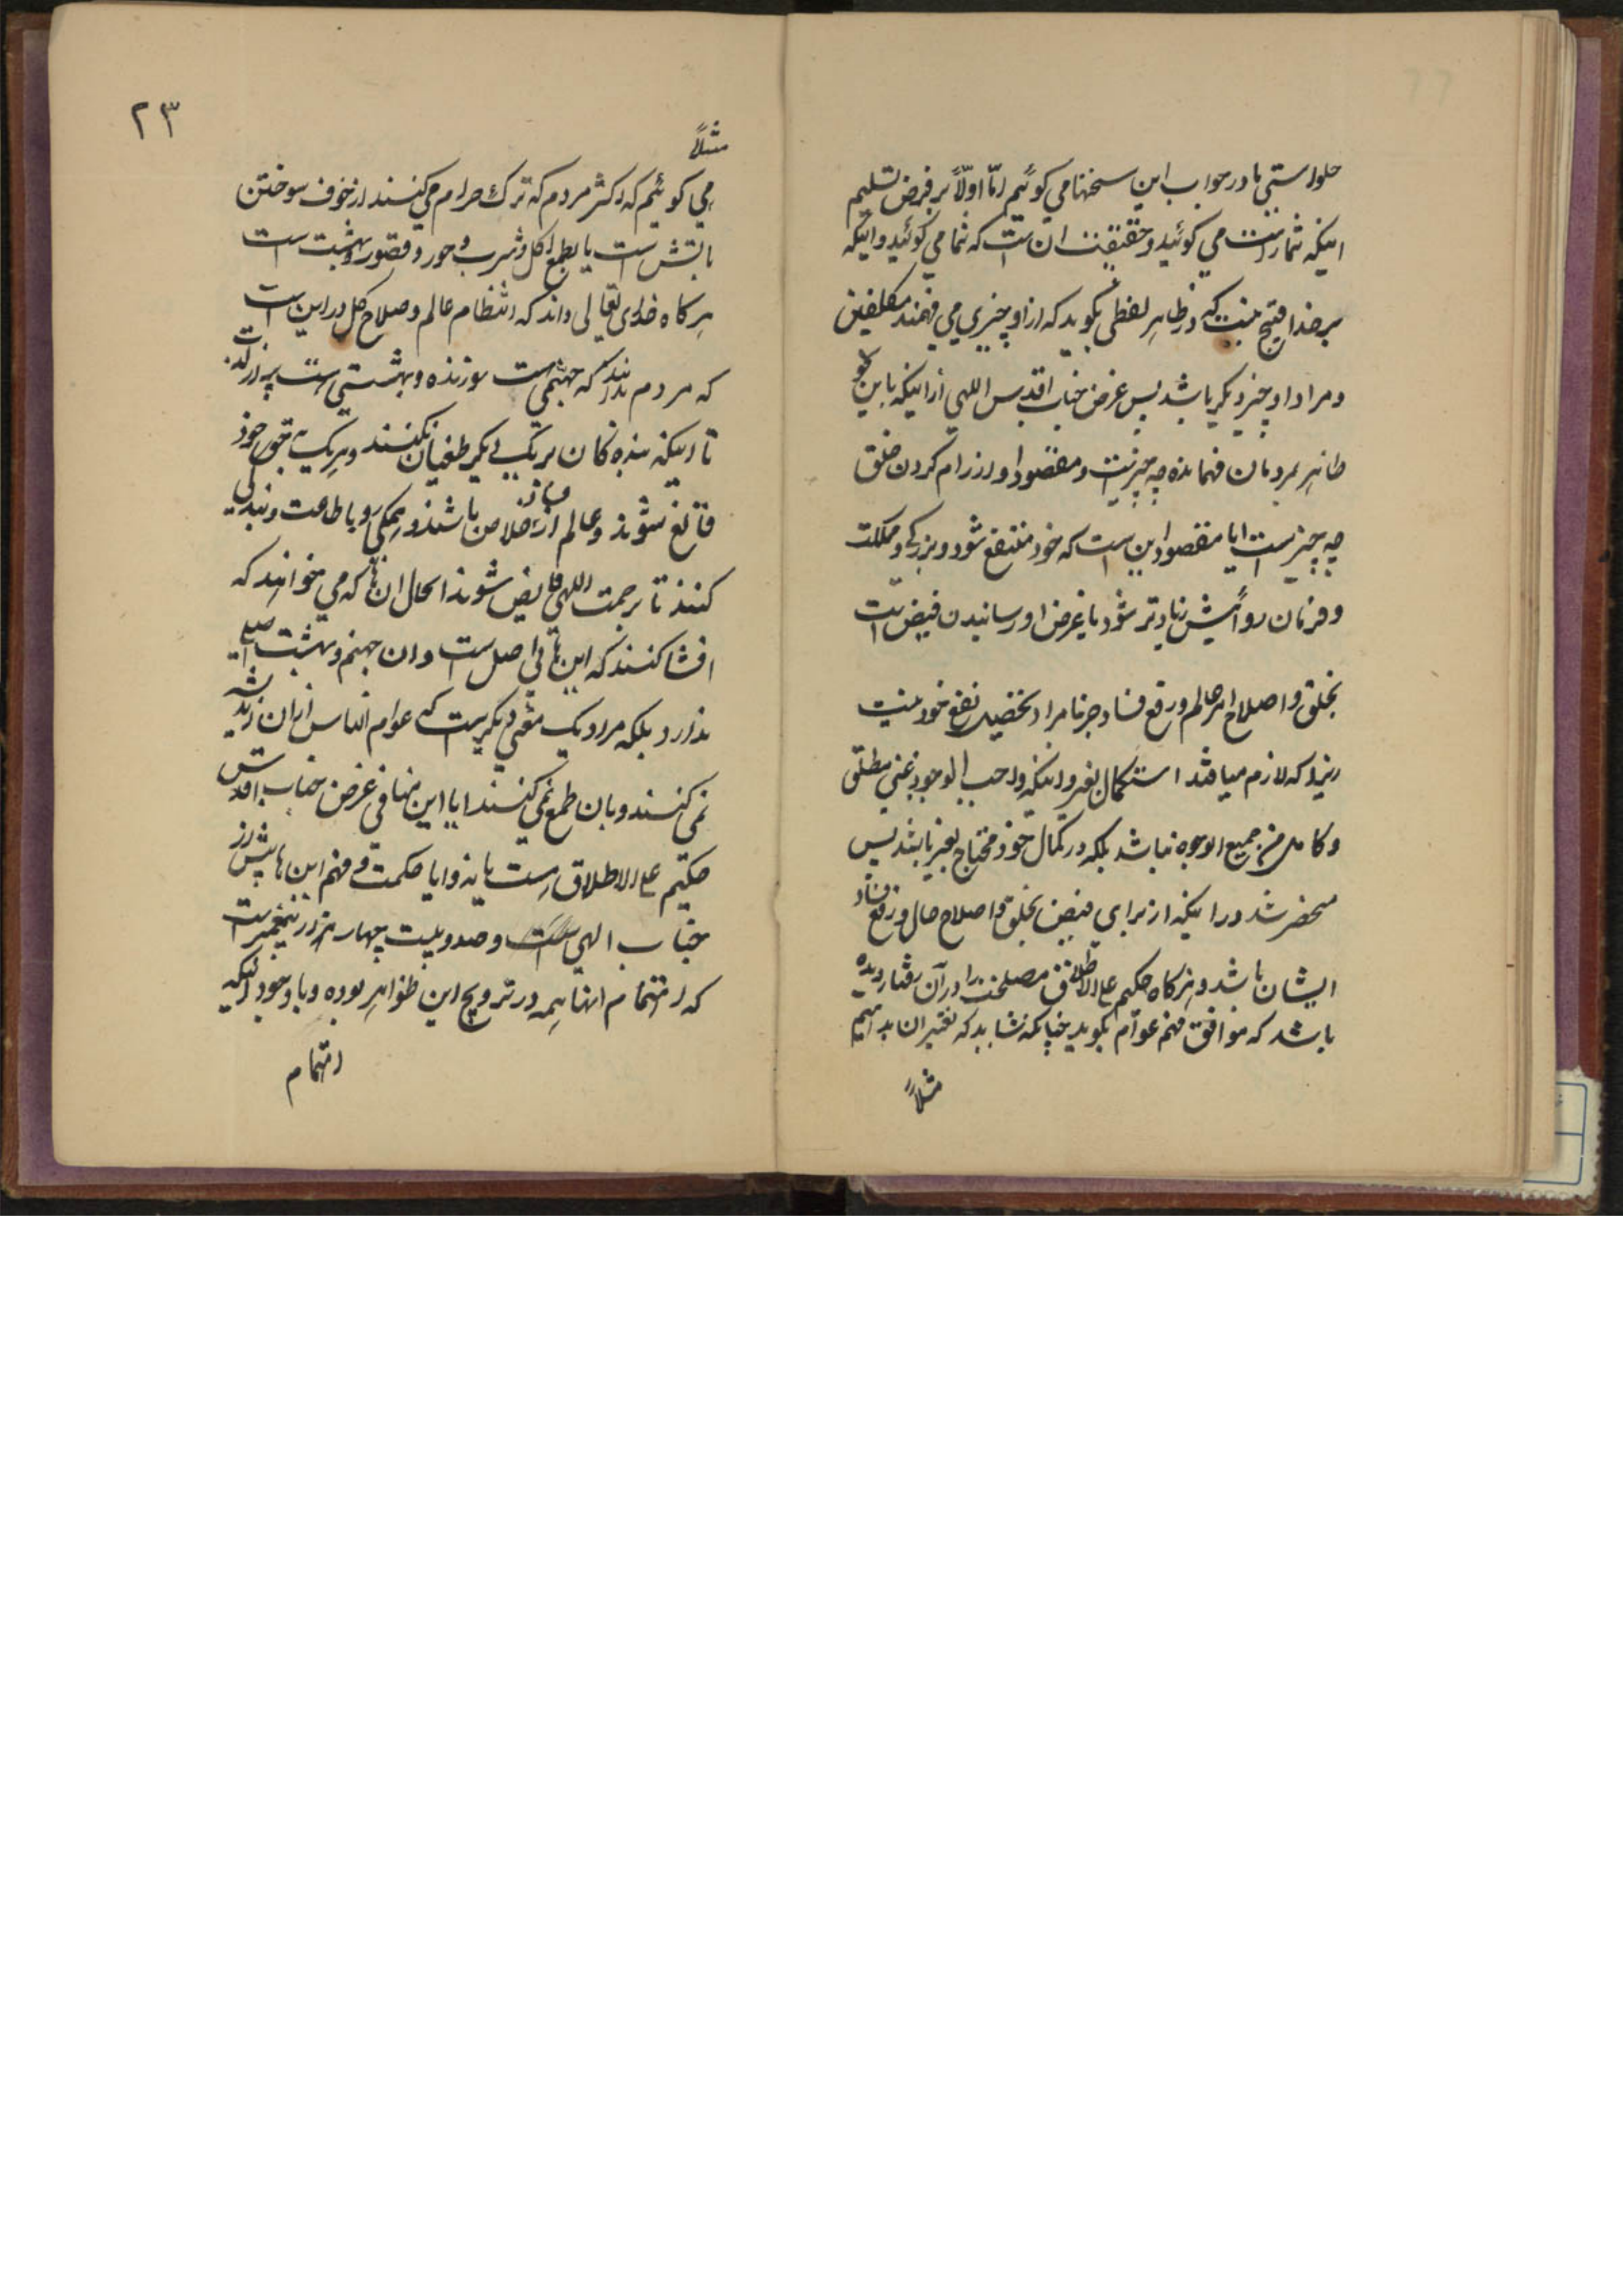 حلواستی ما در جواب این سخنها می کوئیم اما اولاً بر فرض تسلیم
اینکه شما راست می کوئید و حقیقت ان است که شما می کوئید و اینکه
بر خدا قبیح نیست که در ظاهر لفظی بکوید که از او چیزی می فهمند مکلفین
و مراد او چیز دیکر باشد پس غرض جناب اقدس اللهی از اینکه باین نحو
ظاهر بمردمان فهمانده چه چیزیست و مقصود او از رام کردن خلق
چه چیز است ایا مقصود این است که خود منتفع شود و بزرکی و مملکت
و فرمان روائیش زیادتر شود یا غرض او رسانیدن فیض است
بخلق و اصلاح امر عالم و رفع فساد جزما مراد تحصیل نفع خود نیست
زیرا که لازم میافتد استکمال بغیر و اینکه واجب الوجود غنی مطلق
و کامل من جمیع الوجوه نباشد بلکه در کمال خود محتاج بغیر باشد پس
منحصر شد در اینکه از برای فیض بخلق و اصلاح حال و رفع فساد
ایشان باشد و هرکاه حکیم علی الاطلاق مصلحت را در آن رفتار دیده
باشد که موافق فهم عوام بکوید چنانکه نشاید که تغییر ان بدهیم
مثلاً
۲۳
مثلاً
می کوئیم که اکثر مردم که ترک حرام می کنند از خوف سوختن
باتش است یا بطمع اکل و شرب و حور و قصور بهشت است
هرکاه خدای تعالی داند که انتظام عالم و صلاح کل در این است
که مردم بدانند که جهنمی است سوزنده و بهشتی است پر از لذت
تا اینکه بنده کان بر یک دیکر طغیان نکنند و هر یک بحق خود
قانع شوند و عالم از فساد خلاص باشد و همکی رو باطاعت و بندکی
کنند تا برحمت اللهی فایض شوند الحال ان ها که می خواهند که
افشا کنند که این ها بی اصل است و ان جهنم و بهشت اصلی
ندارد بلکه مراد یک معنی دیکر است که عوام الناس از ان اندیشه
نمی کنند و بان طمع نمی کنند ایا این منافی غرض جناب اقدس
حکیم علی الاطلاق است یا نه و ایا حکمت و فهم این ها بیش از
جناب الهی است و صد و بیست چهار هزار پیغمبر است
که اهتمام انها همه در ترویج این ظواهر بوده و با وجود اینکه
اهتمام